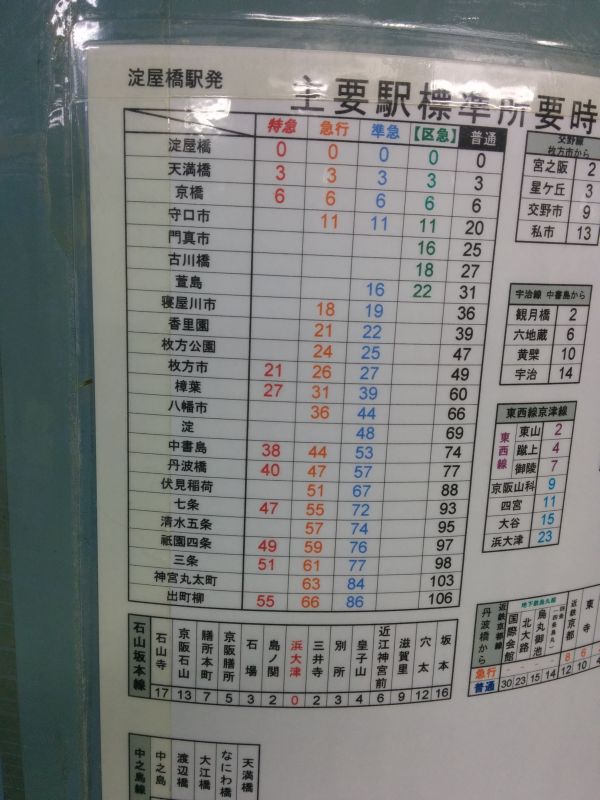 淀屋橋駅発
主要駅標準所要時
特急 急行 準急 【区急】 普通
淀屋橋 0 0 0 0 0
天満橋 3 3 3 3 3
京橋 6 6 6 6 6
守口市 11 11 11 20
門真市 16 25
古川橋 18 27
萱島 16 22 31
寝屋川市 18 19 36
香里園 21 22 39
枚方公園 24 25 47
枚方市 21 26 27 49
樟葉 27 31 39 60
八幡市 36 44 66
淀 48 69
中書島 38 44 53 74
丹波橋 40 47 57 77
伏見稲荷 51 67 88
七条 47 55 72 93
清水五条 57 74 95
祇園四条 49 59 76 97
三条 51 61 77 98
神宮丸太町 63 84 103
出町柳 55 66 86 106
交野線
枚方市から
宮之阪 2
星ケ丘 3
交野市 9
私市 13
宇治線 中書島から
観月橋 2
六地蔵 6
黄檗 10
宇治 14
東西線京津線
東西線
東山 2
蹴上 4
御陵 7
京阪山科 9
四宮 11
大谷 15
浜大津 23
石山坂本線
石山寺 17
京阪石山 13
膳所本町 7
京阪膳所 5
石場 3
島ノ関 2
浜大津 0
三井寺 2
別所 3
皇子山 4
近江神宮前 6
滋賀里 9
穴太 12
坂本 16
丹波橋から
地下鉄烏丸線
近鉄京都線
国際会館
北大路
烏丸御池
近鉄京都
東寺
急行 8 6
普通 30 23 15 14 12 10
中之島線
中之島
渡辺橋
大江橋
なにわ橋
天満橋